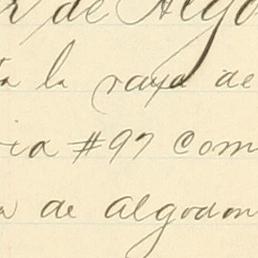 de Algo
la raya de
ia #97 com
de algodon